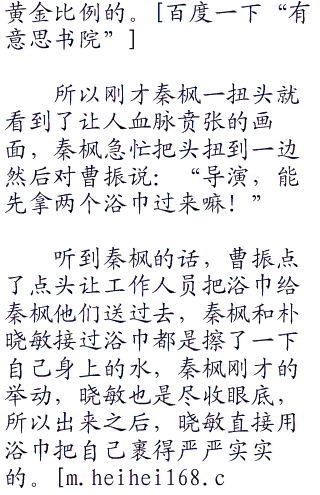 黄金比例的。[百度一下“有
意思书院”]
所以刚才秦枫一扭头就
看到了让人血脉贲张的画
面，秦枫急忙把头扭到一边
然后对曹振说：“导演，能
先拿两个浴巾过来嘛！”
听到秦枫的话，曹振点
了点头让工作人员把浴巾给
秦枫他们送过去，秦枫和朴
晓敏接过浴巾都是擦了一下
自己身上的水，秦枫刚才的
举动，晓敏也是尽收眼底，
所以出来之后，晓敏直接用
浴巾把自己裹得严严实实
的。[m.heihei168.c